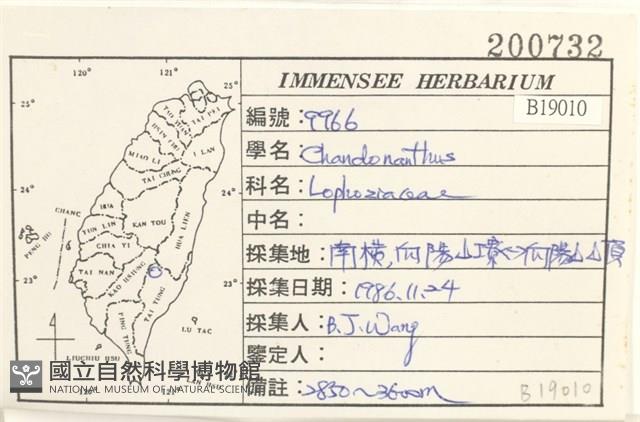 200732
IMMENSEE HERBARIUM
B19010
編號：9966
學名：Chandonanthus
科名：Lophoziaceae
中名：
採集地：南橫,向陽山壩<->向陽山山頂
採集日期：1986.11.24
採集人：B.J.Wang
鑒定人：
備註：2850~3600m
B19010
120° 121°
25° 25°
TAI PEI
I LAN
MIAO LI
TAI CHUNG
24° 24°
CHANG
HUA
KAN TOU
HUA LIEN
YUN LIN
PENG HU
CHIA YI
TAI NAN
KAO HSIUNG
23° 23°
TAI TUNG
PING TUNG
LU TAC
LIUCHIU HSU
120° 121°
國立自然科學博物館
NATIONAL MUSEUM OF NATURAL SCIENCE